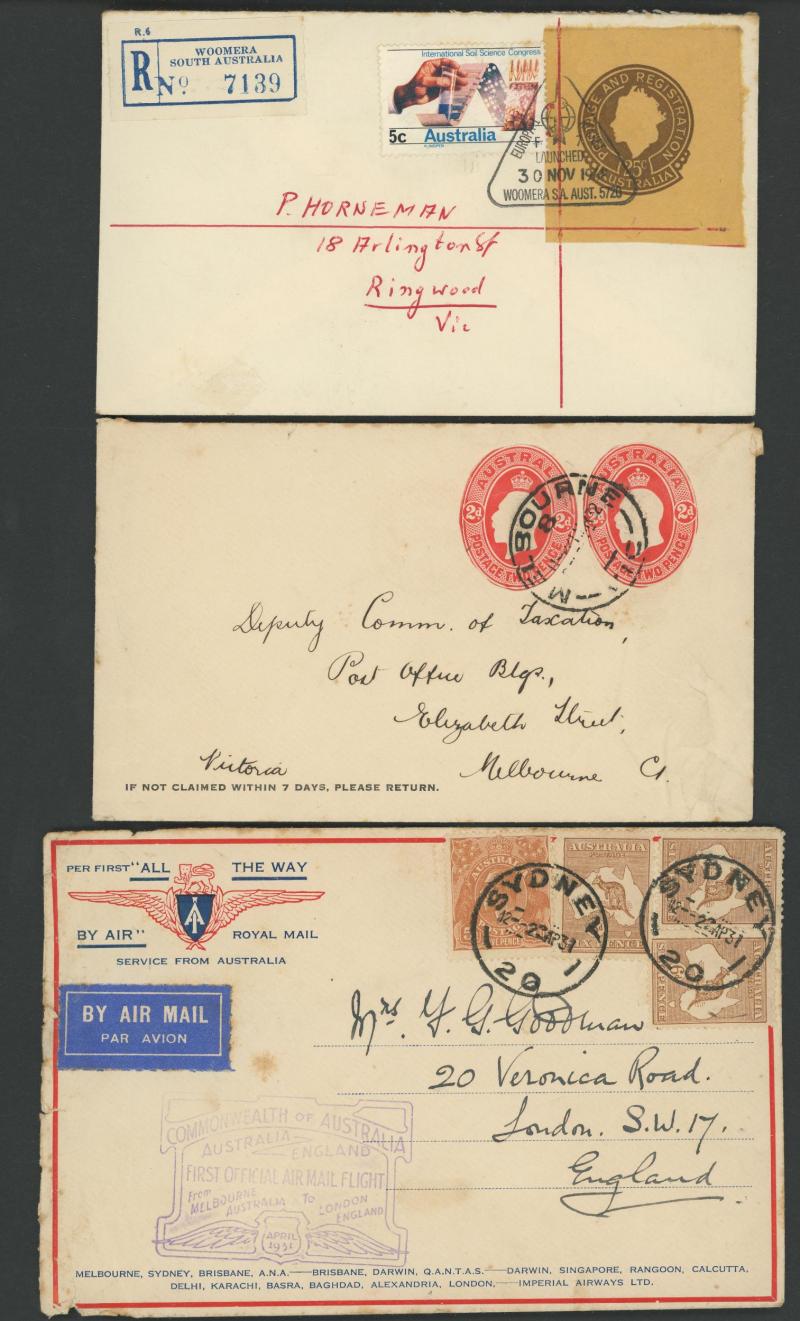 R.6
R No 7139
WOOMERA
SOUTH AUSTRALIA
International Soil Science Congress
5c Australia
POSTAGE AND REGISTRATION
25c
AUSTRALIA
LAUNCHED
30 NOV
WOOMERA S.A. AUST. 5720
P. HORNEMAN
18 Arlington St
Ringwood
Vic
AUSTRALIA
2d 2d
POSTAGE TWO PENCE
AUSTRALIA
2d
POSTAGE TWO PENCE
MELBOURNE
8
Deputy Comm. of Taxation,
Post Office Blgs.,
Elizabeth Street,
Melbourne C1.
Victoria
IF NOT CLAIMED WITHIN 7 DAYS, PLEASE RETURN.
PER FIRST "ALL THE WAY
BY AIR" ROYAL MAIL
SERVICE FROM AUSTRALIA
BY AIR MAIL
PAR AVION
AUSTRALIA
AUSTRALIA
POSTAGE
SYDNEY
22AP31
20
SYDNEY
22AP31
20
Mrs. Y. G. Goodman
20 Veronica Road.
London. S.W.17.
England
COMMONWEALTH OF AUSTRALIA
AUSTRALIA ENGLAND
FIRST OFFICIAL AIR MAIL FLIGHT
From MELBOURNE AUSTRALIA To LONDON ENGLAND
APRIL
1931
MELBOURNE, SYDNEY, BRISBANE, A.N.A.—BRISBANE, DARWIN, Q.A.N.T.A.S.—DARWIN, SINGAPORE, RANGOON, CALCUTTA,
DELHI, KARACHI, BASRA, BAGHDAD, ALEXANDRIA, LONDON,—IMPERIAL AIRWAYS LTD.